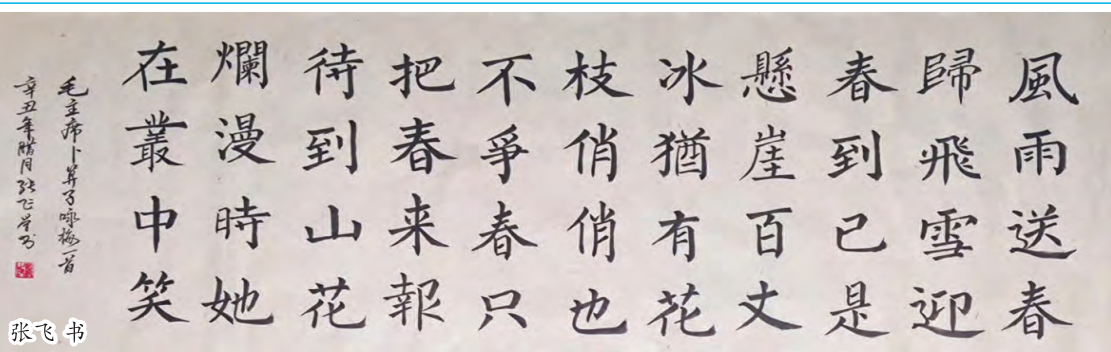 風雨送春
歸飛雪迎
春到已是
懸崖百丈
冰猶有花
枝俏俏也
不爭春只
把春来報
待到山花
爛漫時她
在叢中笑
毛主席卜算子咏梅一首
辛丑年腊月张飞学书
张飞 书